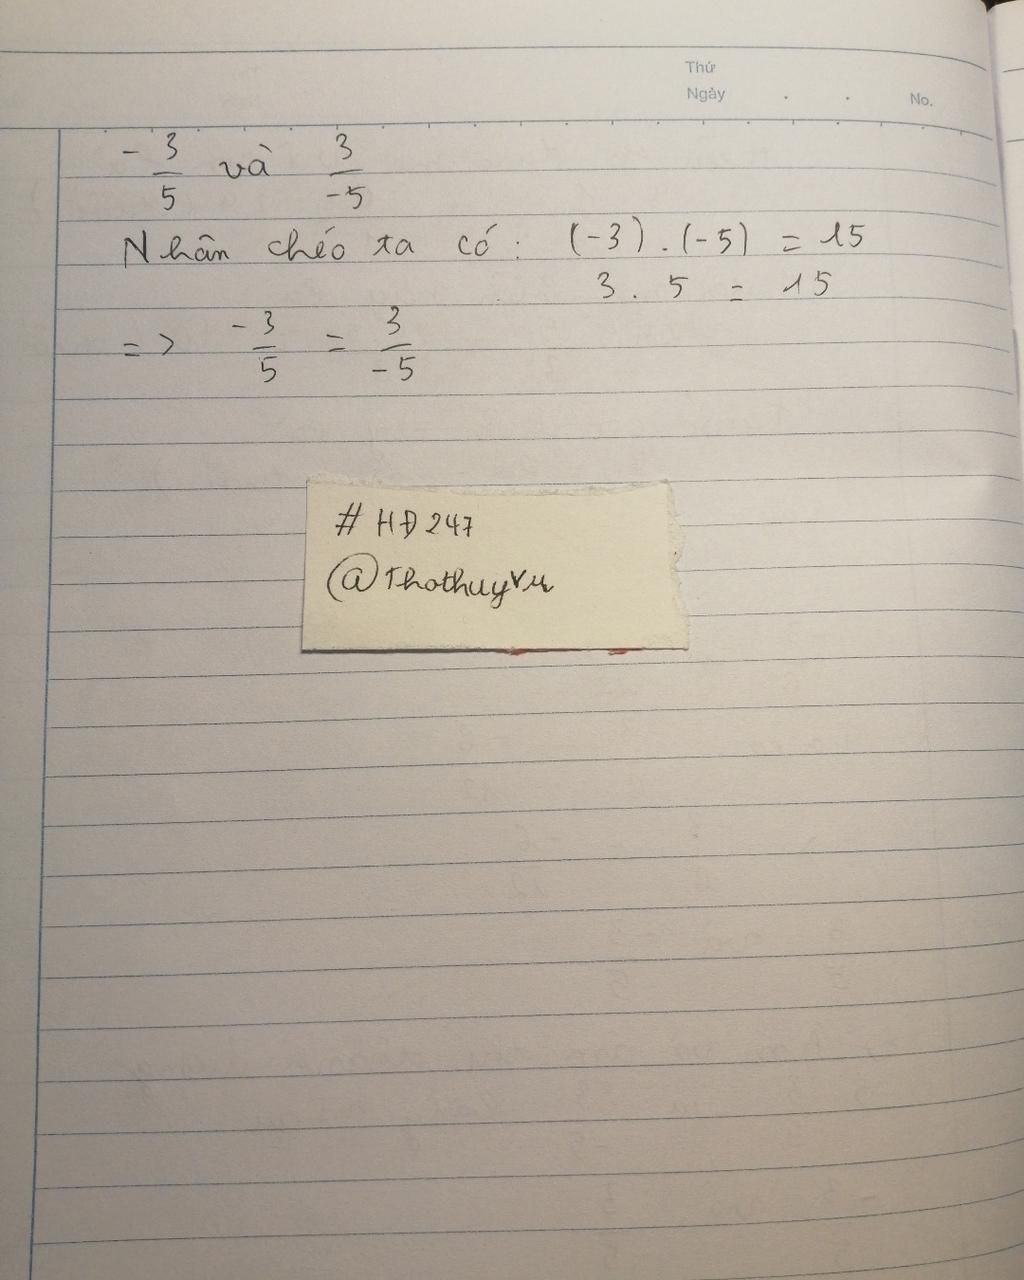 Thứ
Ngày . . No.
-3/5 và 3/-5
Nhân chéo ta có: (-3).(-5) = 15
3.5 = 15
=> -3/5 = 3/-5
#HĐ247
@Thothuyvu